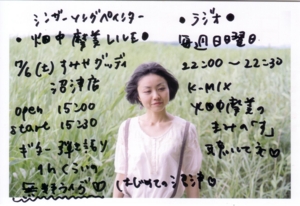 シンガーソングペインター
・畑中摩美LIVE・
7/6(土)すみやグッディ
沼津店
open 15:00
start 15:30
ギター弾き語り
1hくらいの
無料ライブ♡
はじめての沼津♡
・ラジオ・
毎週日曜日
22:00〜22:30
K-MIX
畑中摩美の
まみの「す」
聴いてネ♡